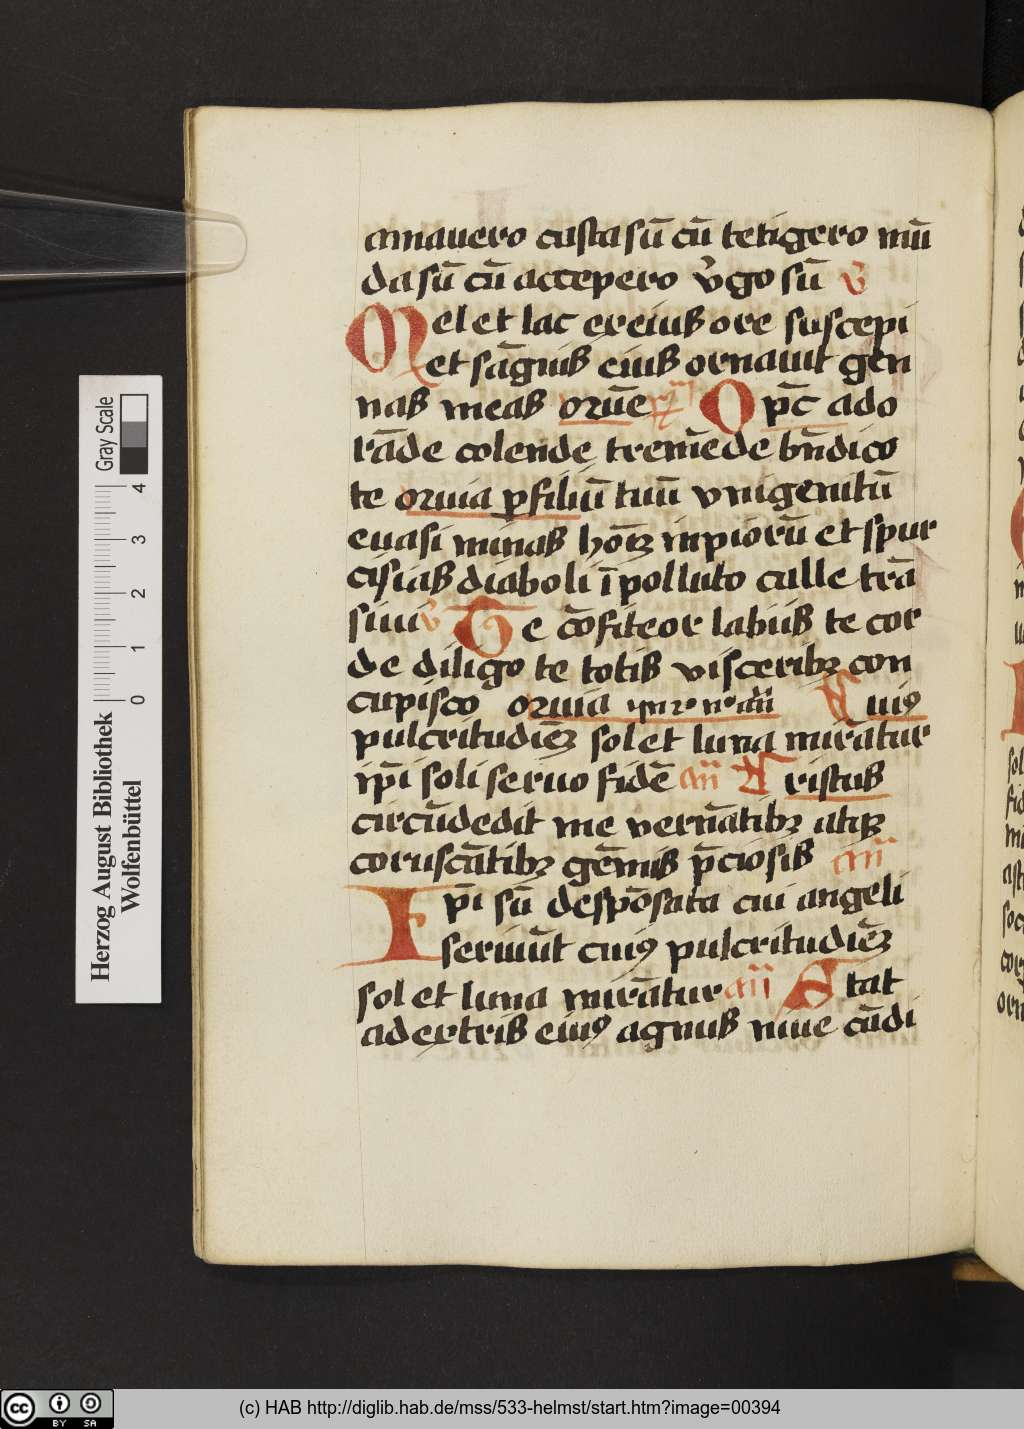 amauero casta sū cū tetigero mū
da sū cū accepero v̓go sū v̄
Mel et lac ex eius ore suscepi
et sāguis eius ornauit gen
nas meas oruēs Op̄c ado
rāde colende tremēde bn̄dico
te qruia p filiū tuū vnigenitū
euasi minas hoīꝫ inpiorū et spur
cisias diaboli ī polluto calle trā
siui v̄ Te cōfiteor labiis te cor
de diligo te totis visceribꝫ con
cupisco qruia Cuiꝰ
pulcritudiēꝫ sol et luna mirātur
ip̄i soli seruo fidē an̄ Xristus
circūdedit me vernātibꝫ atqꝫ
coruscātibꝫ gēmis p̄ciosis an̄
Ip̄i sū despōsata cui angeli
seruiūt cuiꝰ pulcritudiēꝫ
sol et luna mirātur an̄ Stat
a dextris eiuꝰ agnus niue cādi
Herzog August Bibliothek
Wolfenbüttel
0 1 2 3 4
Gray Scale
cc BY SA
(c) HAB http://diglib.hab.de/mss/533-helmst/start.htm?image=00394